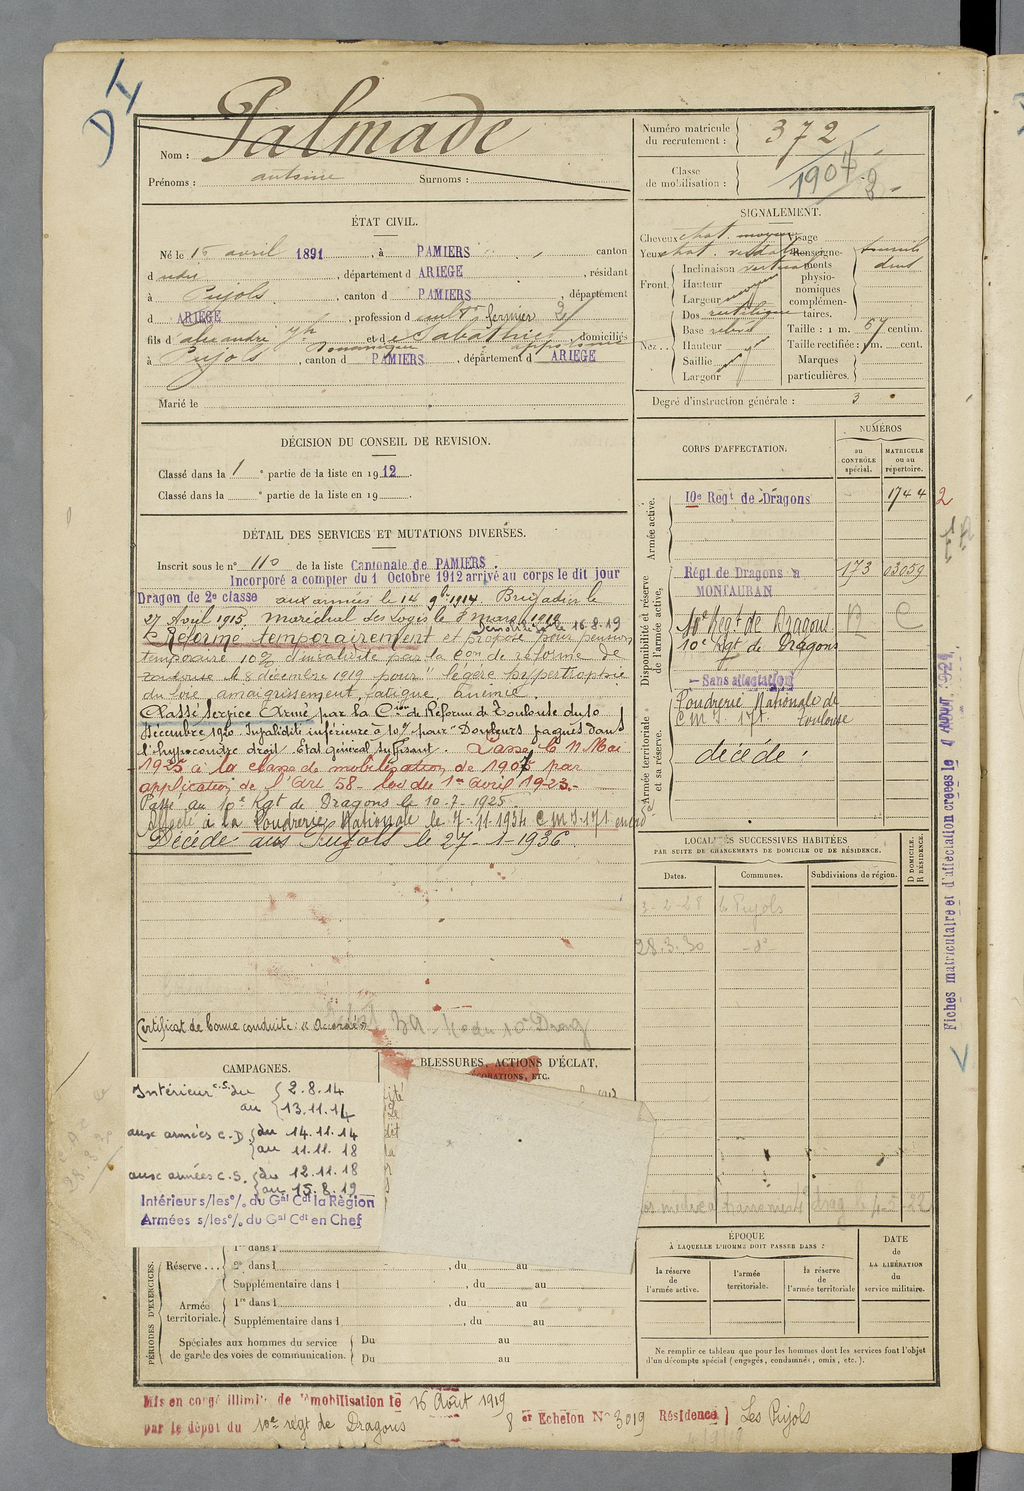 DI
Nom : Palmade
Prénoms : antoine Surnoms :
Numéro matricule du recrutement : 372
Classe de mobilisation : 1907
ÉTAT CIVIL.
Né le 15 avril 1891, à PAMIERS, canton
d udit, département d ARIEGE, résidant
à Pujols, canton d PAMIERS, département
d ARIEGE, profession de cultr fermier 2
fils d'alexandre Jh et de Sabathier apporonie, domiciliés
à Pujols canton d PAMIERS, département d ARIEGE
Marié le
SIGNALEMENT.
Cheveux chat. moyen Visage
Yeux chat. verdatre
Front. Inclinaison verticale
Hauteur
Largeur moyen
Nez. Dos rectiligne
Base relevé
Hauteur
Saillie
Largeur
Renseignements physionomiques complémentaires.
Taille : 1 m. 67 centim.
Taille rectifiée : 1 m. cent.
Marques particulières.
Degré d'instruction générale : 3
DÉCISION DU CONSEIL DE REVISION.
Classé dans la 1e partie de la liste en 1912.
Classé dans la e partie de la liste en 19
CORPS D'AFFECTATION.
NUMÉROS
au CONTRÔLE spécial.
MATRICULE ou au répertoire.
Armée active.
10e Regt de Dragons 1744
2
Disponibilité et réserve de l'armée active.
Régt de Dragons à 173 03059
MONTAUBAN
10e Regt de Dragons R C
10e Rgt de Dragons
— Sans affectation
Armée territoriale et sa réserve.
Poudrerie Nationale de
C M J. 171. Toulouse
décédé :
DÉTAIL DES SERVICES ET MUTATIONS DIVERSES.
Inscrit sous le n° 110 de la liste Cantonale de PAMIERS.
Incorporé à compter du 1 Octobre 1912 arrivé au corps le dit jour
Dragon de 2e classe aux armées le 14 9bre 1914. Brigadier le
27 Avril 1915. Maréchal des Logis le 8 mars 1919
Démobilisé le 16.8.19
Réformé temporairement et proposé pour pension
temporaire 10% d'invalidité par la Con de réforme de
Toulouse le 8 décembre 1919 pour "légère hypertrophie
du foie, amaigrissement, fatigue, anémie.
Classé Service Armé par la Cion de Réforme de Toulouse du 10
décembre 1920. Invalidité inférieure à 10% pour "Douleurs vagues dans
l'hypocondre droit. Etat général suffisant. Passé le 11 Mai
1925 à la classe de mobilisation de 1907 par
application de l'Art 58 - loi du 1er avril 1923.-
Passé au 10e Rgt de Dragons le 10-7-1925.
Affecté à la Poudrerie Nationale le 7-11-1934 C M J-171
Décédé aux Pujols le 27-1-1936
Certificat de bonne conduite : "Accordé"
LOCALITÉS SUCCESSIVES HABITÉES
PAR SUITE DE CHANGEMENTS DE DOMICILE OU DE RÉSIDENCE.
Dates. Communes. Subdivisions de région.
D DOMICILE. R RÉSIDENCE.
3-2-28 Pujols
28.3.30 - do -
Fiches matriculaire et d'affectation créées le
CAMPAGNES.
Intérieur c.s. du 2.8.14
au 13.11.14
aux armées C.D. du 14.11.14
au 11.11.18
aux armées C.S. du 12.11.18
au 15.8.19
Intérieur s/les % du Gal Cdt la Région
Armées s/les % du Gal Cdt en Chef
BLESSURES, ACTIONS D'ÉCLAT,
DÉCORATIONS, ETC.
PÉRIODES D'EXERCICES.
Réserve 1re dans l
2e dans l , du au
Supplémentaire dans l , du au
Armée territoriale. 1re dans l , du au
Supplémentaire dans l , du au
Spéciales aux hommes du service de garde des voies de communication. Du au
Du au
ÉPOQUE
À LAQUELLE L'HOMME DOIT PASSER DANS :
la réserve de l'armée active.
l'armée territoriale.
la réserve de l'armée territoriale
DATE de LA LIBÉRATION du service militaire.
Ne remplir ce tableau que pour les hommes dont les services font l'objet
d'un décompte spécial (engagés, condamnés, omis, etc.).
Mis en congé illimité de démobilisation le 16 Août 1919
par le dépôt du 10e régt de Dragons 8 er Echelon N° 3019 Résidence Les Pujols